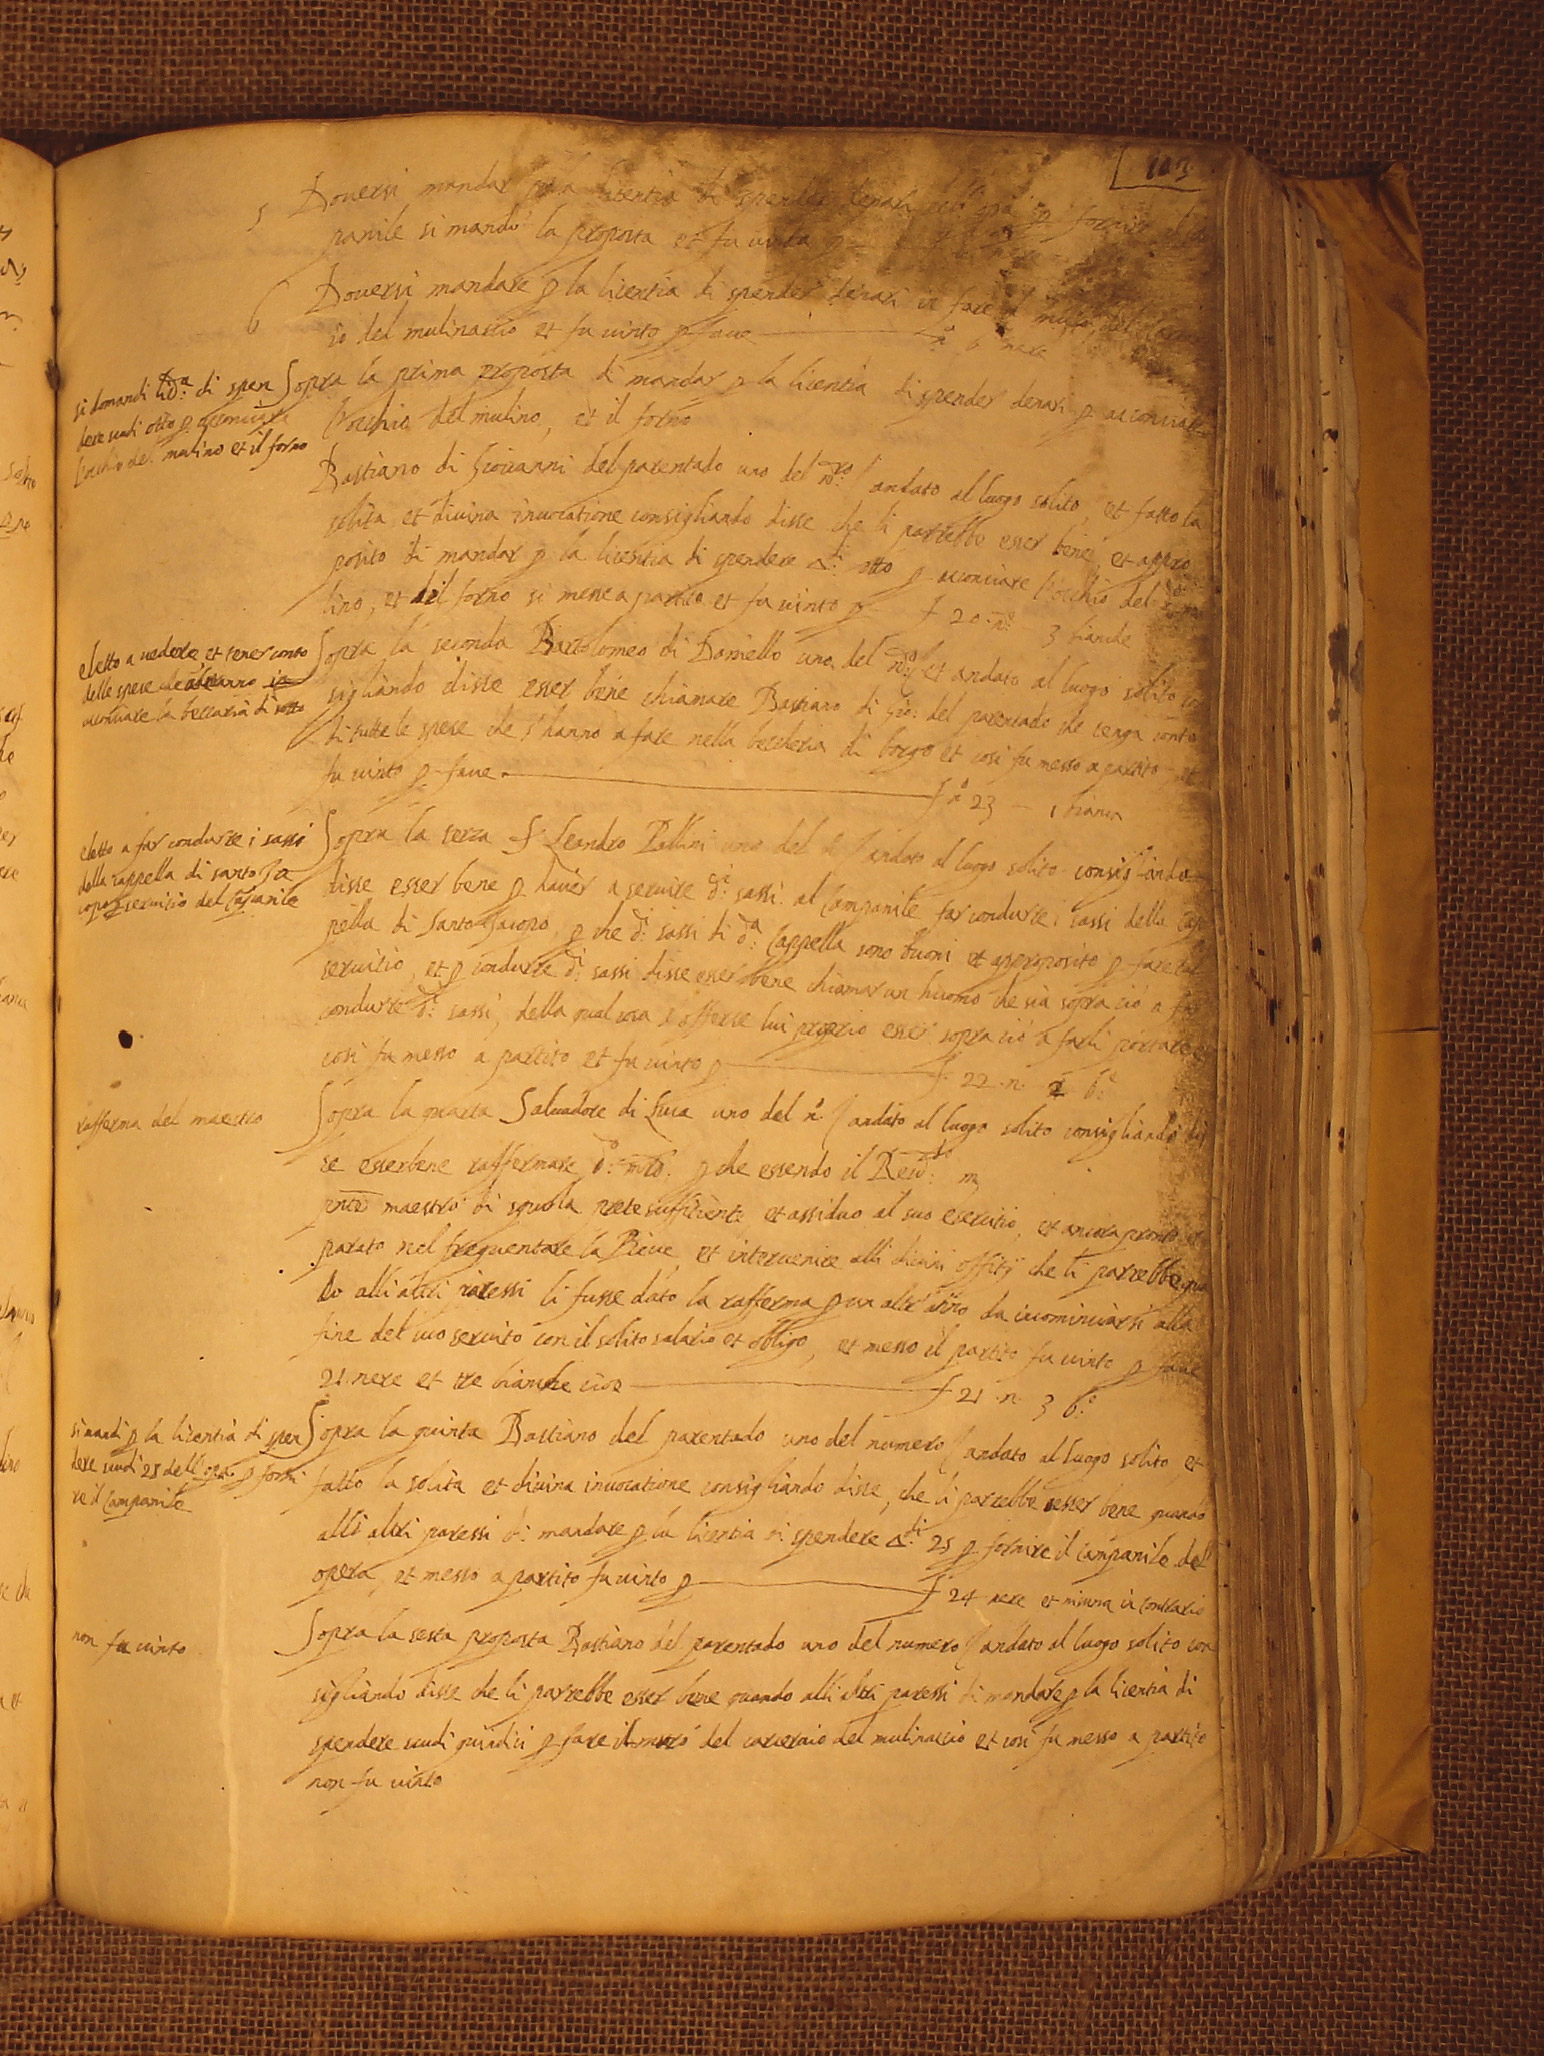 103
5 Doversi mandar p la licentia di spender denari dell' opa p fornire il cam
panile si mandò la proposta et fu vinta p
6 Doversi mandare p la licentia di spender denari in fare il muro del carcera
io del mulinaccio et fu vinto p fave nere
si domandi lića di spen
dere scudi otto p acconciare
l'occhio del mulino et il forno
Sopra la prima proposta di mandar p la licentia di spender denari p acconciare
l'occhio del mulino, et il forno
Bastiano di Giovanni del parentado uno del nro / andato al luogo solito, et fatto la
solita et divina invocatione consigliando disse che li parrebbe esser bene, et appro
posito di mandar p la licentia di spendere di otto p acconciare l'occhio del mu
lino, et del forno si messe a partito et fu vinto p f 20 n. 3 bianche
eletto a vedere et tener conto
delle spese che si hanno
acconciare la beccaria di sotto
Sopra la seconda Bartolomeo di Daniello uno del nro / et andato al luogo solito con
sigliando disse esser bene chiamare Bastiano di Gio: del parentado che tenga conto
di tutte le spese che s'hanno a fare nella beccheria di borgo et così fu messo a partito, et
fu vinto p fave f n 23 – 1 bianca
eletto a far condurre i sassi
della cappella di santo Ja
copo p servitio del Campanile
Sopra la terza Leandro Pallini uno del n / andato al luogo solito consigliando
disse esser bene p haver a servire di sassi al Campanile far condurre i sassi della Cap
pella di Santo Jacopo, p che d: sassi di da Cappella sono buoni et approposito p fare tal
servitio, et p condurre d: sassi disse esser bene chiamar un huomo che sia sopra ciò a far
condurre d: sassi, della qual cosa s'offerse lui proprio esser sopra ciò a farli portare et
così fu messo a partito et fu vinto p f 22 n. 2 b.
rafferma del maestro
Sopra la quarta Salvadore di Luca uno del n. / andato al luogo solito consigliando dis
se esser bene raffermare do: mro: p che essendo il Revdo: m
pnte maestro di squola prete sufficiente, et assiduo al suo esercitio, et ancora pronto et
parato nel frequentare la Pieve, et intervenire alli divini offitij che li parrebbe qua
do alli altri paressi li fusse dato la rafferma p un altr' anno da incominciarsi alla
fine del suo servito con il solito salario et obligo, et messo il partito fu vinto p fave
21 nere et tre bianche cioè f 21 n. 3 b.
si mandi p la licentia di spen
dere scudi 25 dell' opa: p forni
re il Campanile
Sopra la quinta Bastiano del parentado uno del numero / andato al luogo solito, et
fatto la solita et divina invocatione consigliando disse, che li parrebbe esser bene quando
alli altri paressi di mandare p la licentia di spendere di 25 p fornire il campanile del
opera, et messo a partito fu vinto p f 24 nere et niuna in contrario
non fu vinto
Sopra la sesta proposta Bastiano del parentado uno del numero / andato al luogo solito con
sigliando disse che li parrebbe esser bene quando alli altri paressi di mandare p la licentia di
spendere scudi quindici p fare il muro del carceraio del mulinaccio et così fu messo a partito
non fu vinto